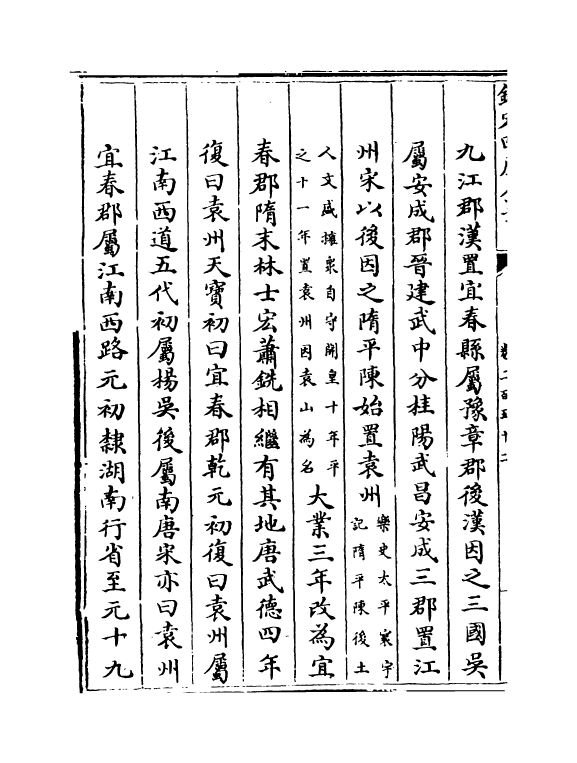 欽定四庫全書
卷二百五十二
九江郡漢置宜春縣屬豫章郡後漢因之三國吳
屬安成郡晉建武中分桂陽武昌安成三郡置江
州宋以後因之隋平陳始置袁州
樂史太平寰宇
記隋平陳後土
人文盛擁衆自守開皇十年平
之十一年置袁州因袁山為名
大業三年改為宜
春郡隋末林士宏蕭銑相繼有其地唐武德四年
復曰袁州天寶初曰宜春郡乾元初復曰袁州屬
江南西道五代初屬楊吳後屬南唐宋亦曰袁州
宜春郡屬江南西路元初隸湖南行省至元十九